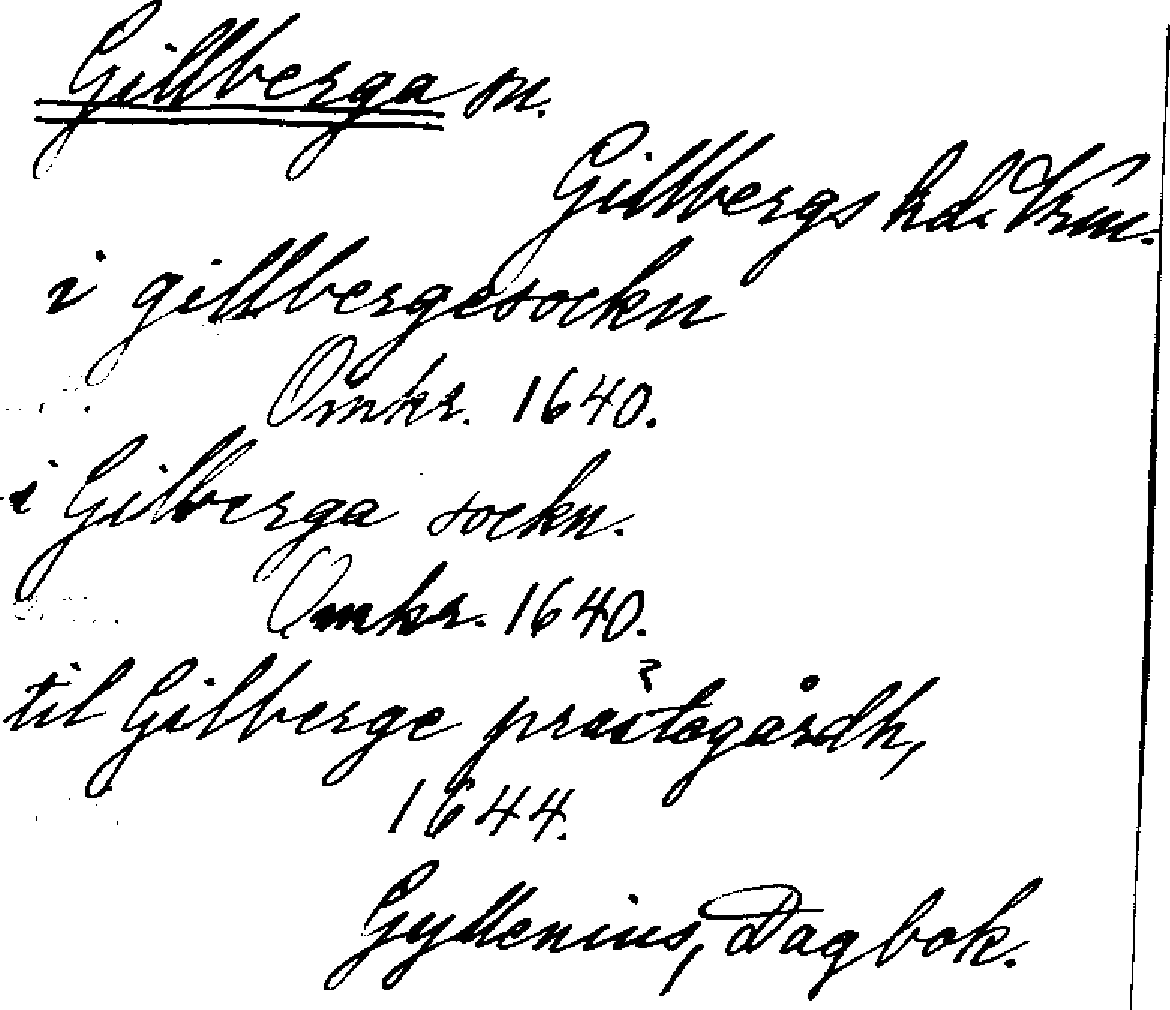 Gillberga sn.
Gillbergs hd. Vrm.
i gillbergesockn
Omkr. 1640.
i Gilberga sockn.
Omkr. 1640.
til Gilberge prästegårdh,
1644.
Gyllenius, Dagbok.